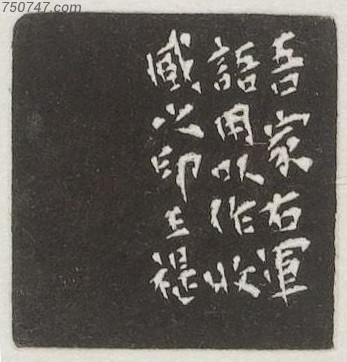 750747.com
吾家右軍
語用以作收
臧之印王禔